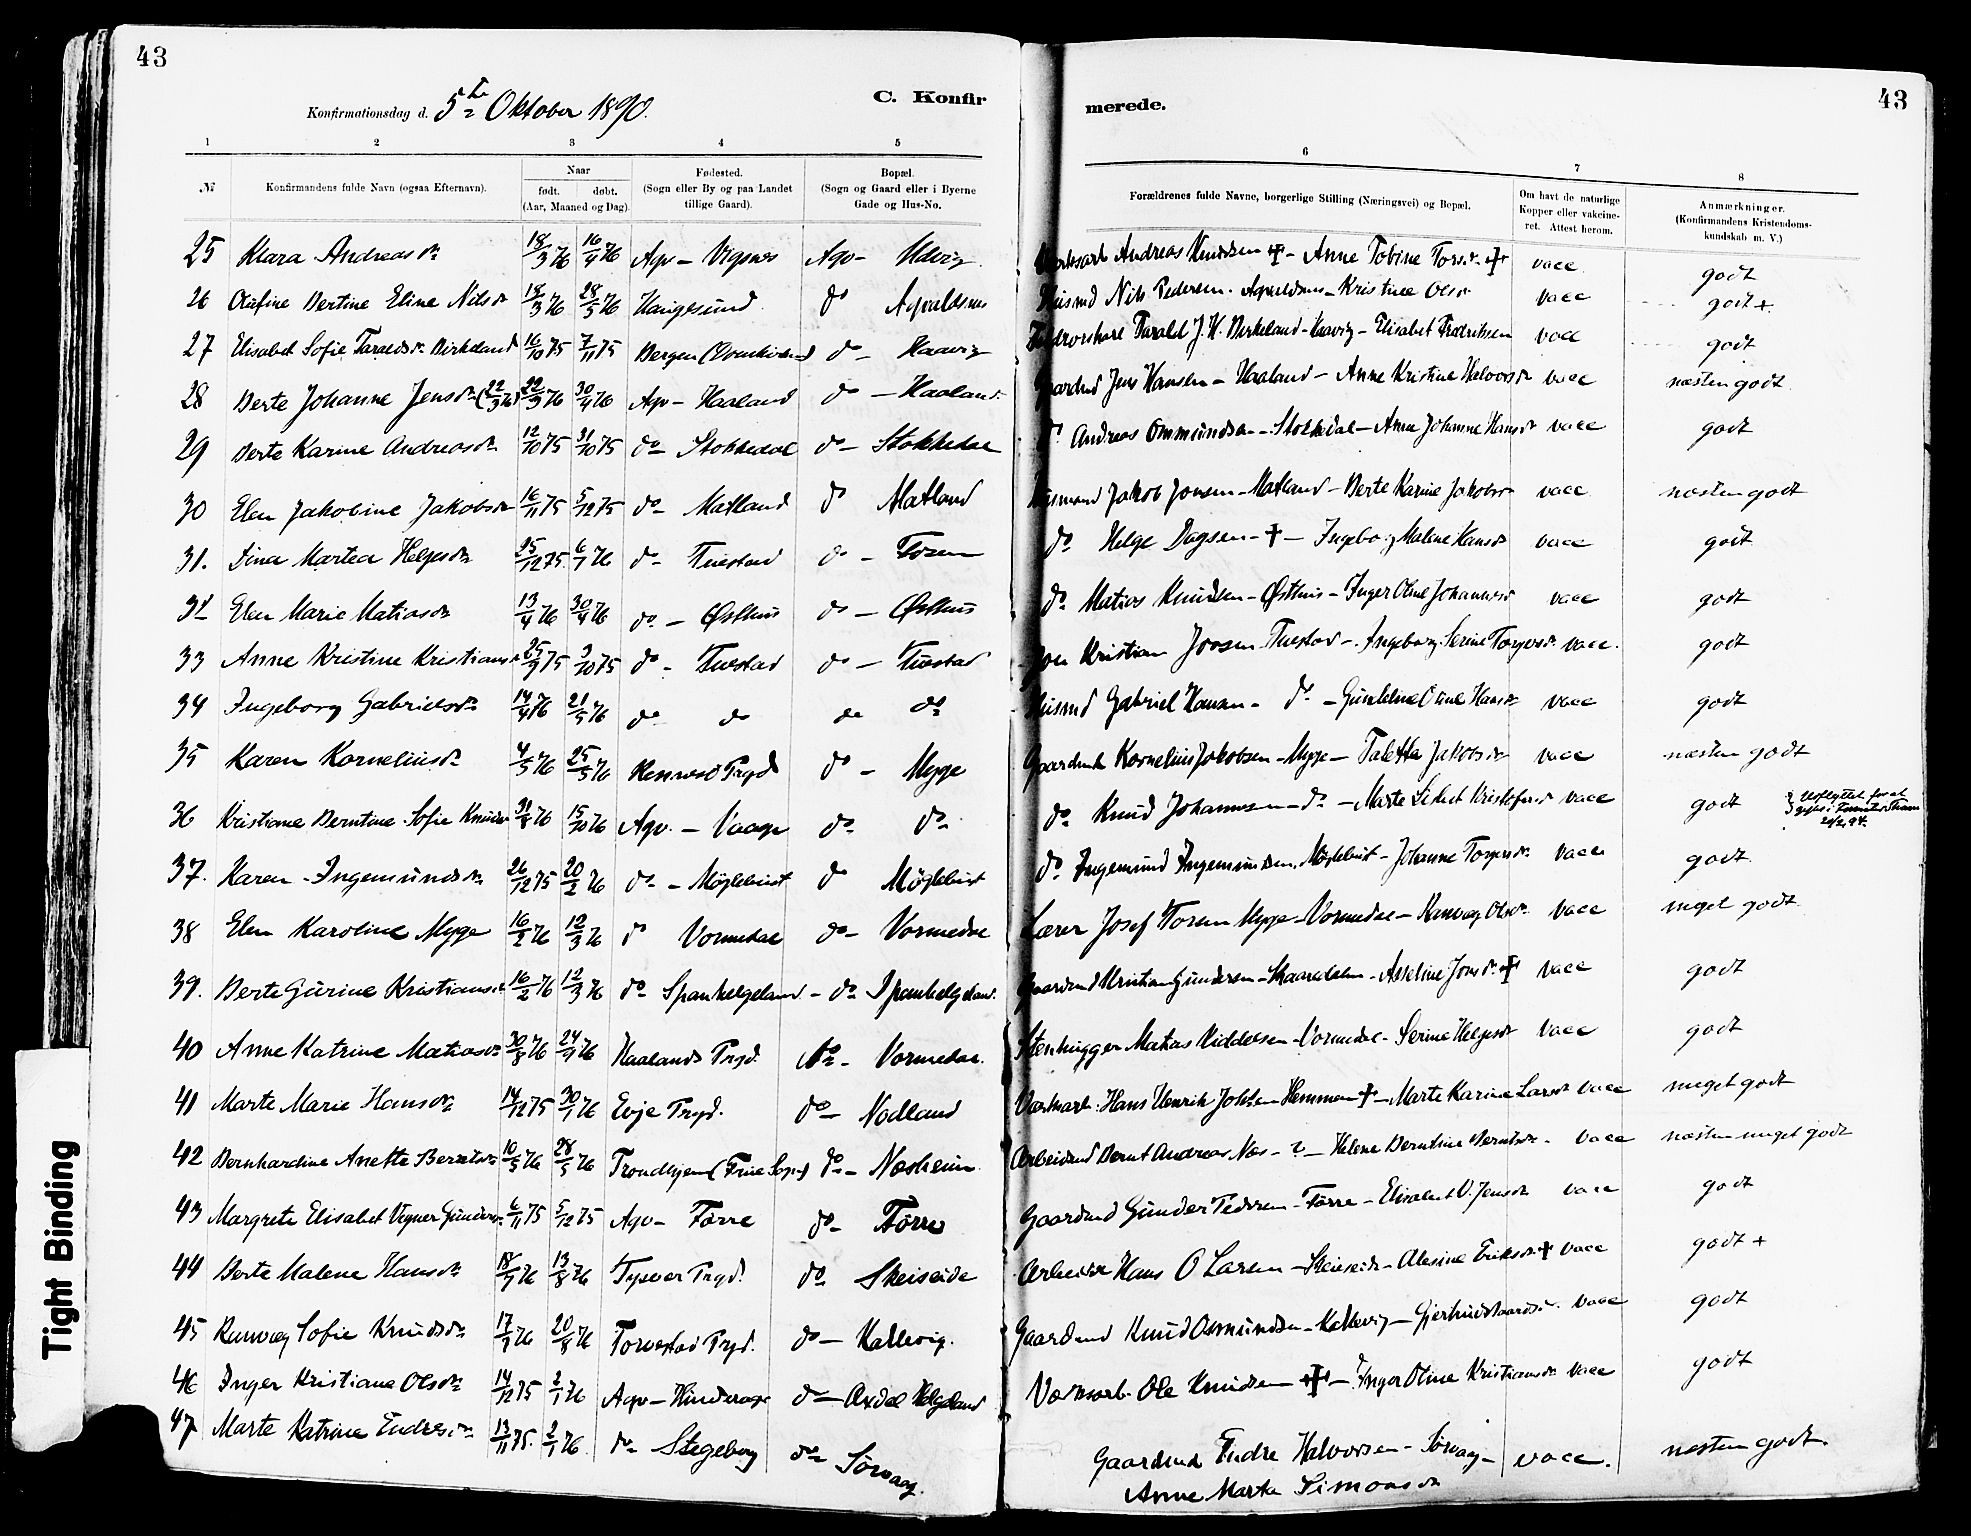 43
43
Konfirmationsdag d. 5te Oktober 1890.
C. Konfir
merede.
1 2 3 4 5 6 7 8
№
Konfirmandens fulde Navn (ogsaa Efternavn).
Naar
født. døbt.
(Aar, Maaned og Dag).
Fødested.
(Sogn eller By og paa Landet
tillige Gaard).
Bopæl.
(Sogn og Gaard eller i Byerne
Gade og Hus-No.
Forældrenes fulde Navne, borgerlige Stilling (Næringsvei) og Bopæl.
Om havt de naturlige
Kopper eller vakcine-
ret. Attest herom.
Anmærkninger.
(Konfirmandens Kristendoms-
kundskab m. V.)
25 Klara Andreasdr 18/3 76 16/4 76 Agv - Vigsnes Agv - Andreas Knudsen + - Anne Tobine + vacc godt
26 Olufine Bertine Eline Nilsdr 18/3 76 28/5 76 Haugesund do Avaldsnes Husmd Nils Pedersen - Avaldsnes - Kristine Olsdr vacc godt +
27 Elisabet Sofie Taraldsdr Birkeland 16/10 75 7/11 75 Bergen do - Haavig Tarald J. H. Birkeland - Haavig - Elisabet Fredriksen vacc godt
28 Berte Johanne Jensdr (22/3 76) 22/3 76 30/4 76 Agv - Haaland do - Haaland Gaardmd Jens Hansen - Haaland - Anne Kristine Halvorsdr vacc næsten godt
29 Berte Karine Andreasdr 12/10 75 31/10 75 do - Stokkedal do - Stokkedal do Andreas Ommundsen - Stokkdal - Anne Johanne Hansdr vacc godt
30 Elen Jakobine Jakobsdr 16/11 75 5/12 75 do - Matland do Matland Husmand Jakob Jonsen - Matland - Berte Karine Jakobsdr vacc næsten godt
31. Dina Martea Helgesdr 25/12 75 6/1 76 do - Tuestad do - Do Helge Dagsen - + - Ingeborg Malene Hansdr vacc godt
32 Elen Marie Matiasdr 13/4 76 30/4 76 do - Østhus do - Østhus do Matias Knudsen - Østhus - Inger Oline Johannesdr vacc godt
33 Anne Kristine Kristiansdr 25/9 75 3/10 75 do - Tuestad do - Tuestad Kristian Joosen Tuestad - Ingeborg Serine Torgersdr vacc. godt
34 Ingeborg Gabrielsdr 14/4 76 21/5 76 do do do do Husmd Gabriel Hansen - do - Gunhilda Oline Hansdr vacc godt
35 Karen Korneliusdr 4/5 76 25/5 76 Rennesø Prgd do - Myge Gaardmd Kornelius Jakobsen - Myge - Taletta Jakobsdr vacc næsten godt
36 Kristiane Berntine Sofie Knudsdr 31/8 76 15/10 76 Agv. - Vaage do do do Knud Johannesen - do - Marte Lisbet Kristofersdr vacc godt Udflyttet for at
20/2 94
37. Karen Ingemundsdr 26/12 75 20/2 76 do - Møglebust do Møglebust do Ingemund Ingemundsen Møglebust - Johanne Torgersdr vacc godt
38 Elen Karoline Myge 16/2 76 12/3 76 do Vormedal do - Vormedal Lærer Josef Myge - Vormedal - Ranvey Olsdr vacc meget godt
39. Berte Gurine Kristiansdr 16/2 76 12/3 76 do Spanhelgeland - do Spanhelgeland Gaardmd Kristian Gundersen - - Asseline Jonsdr + vacc godt
40 Anne Katrine Matiasdr 30/8 76 24/9 76 Haalands Prgd. Av - Vormedal. Stenhugger Matias Viddelsen - Vormedal - Serine Helgesdr vacc godt
41 Marte Marie Hansdr 14/12 75 30/1 76 Evje Prgd. do - Nodland Værksarb. Hans Henrik Johsen Hemmen + - Marte Karine Larsdr vacc meget godt
42 Bernhardine Anette Berntsdr 10/5 76 28/5 76 Trondhjem (Frue Sogn) do - Nesheim Arbeidsmd Bernt Andreas Næs - ? - Helene Berntine Berntsdr - vacc næsten meget godt
43 Margrete Elisabet Vegner Gundersdr 6/11 75 5/12 75 Agv - Førre do - Førre Gaardmd Gunder Pedersen - Førre - Elisabet V. Jensdr vacc godt
44 Berte Malene Hansdr 18/7 76 13/8 76 Tysvær Prgd. do Skeiseide Arbeider Hans O Larsen - Skeiseide - Alesine Eriksdr + vacc godt +
45 Ranvey Sofie Knudsdr 17/7 76 20/8 76 Torvestad Prgd. do - Kallevig. Gaardmd Knud Osmundsen - Kallevig - Gjertrud vacc godt
46 Inger Kristiane Olsdr 14/12 75 2/1 76 Agv - Hinderage do - Axdal Helgeland Værksarb. Ole Knudsen + - Inger Oline Kristiansdr vacc godt
47 Marte Katrine Endresdr 13/11 75. 2/1 76. do Stegeberg do Sørvaag. Gaardmd Endre Halvorsen - Sørvaag - vacc. næsten godt.
Anne Marta Simonsdr
Tight Binding